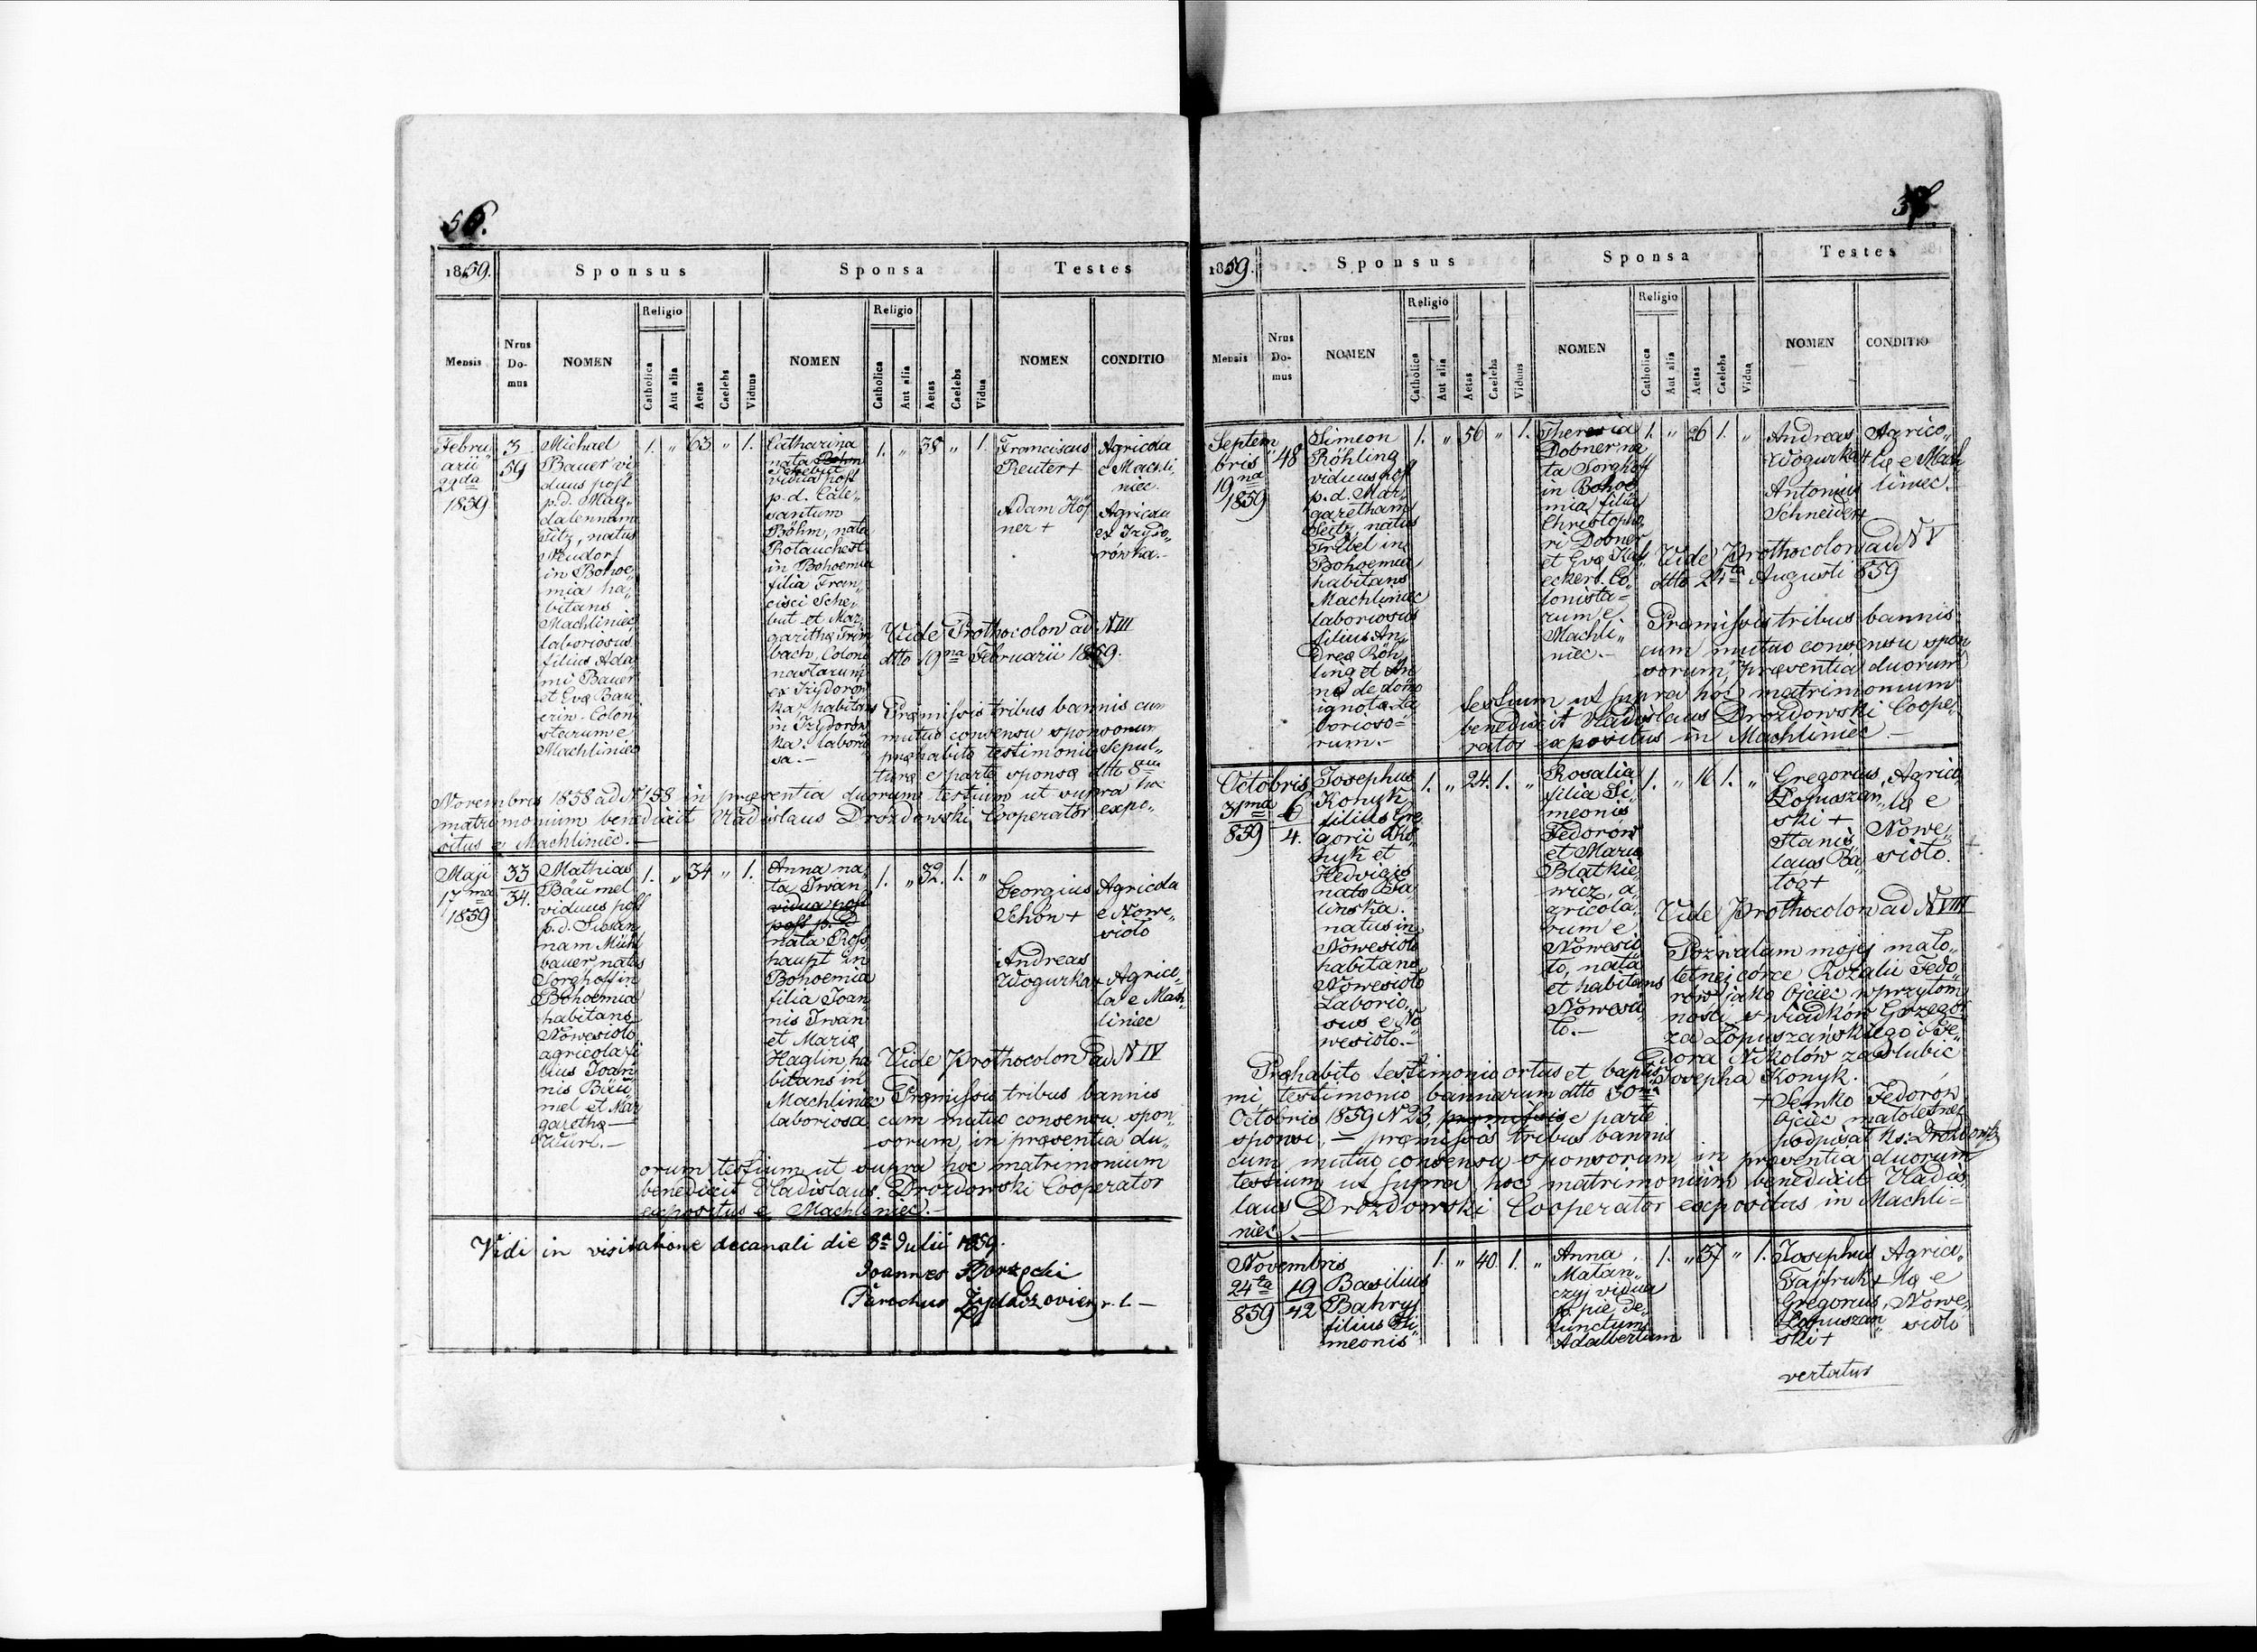 56.
1859.
Sponsus
Sponsa
Testes
Mensis
Nrus
Do-
mus
NOMEN
Religio
Catholica
Aut alia
Aetas
Caelebs
Viduus
NOMEN
Religio
Catholica
Aut alia
Aetas
Caelebs
Vidua
NOMEN
CONDITIO
Febru„
arii
22da
1859
3
59
Michael
Bauer vi
duus post
p.d. Mag„
dalennam
Titz, natus
Neudorf
in Bohoe„
mia ha„
bitans
Machliniec
laboriosus
filius Ada„
mi Bauer
et Evæ Bau
erin Coloni
starum e
Machliniec
1. „ 63 „ 1.
Catharina
nata Böhm
Schebut
vidua post
p.d. Cale„
santum
Böhm, nata
Rotauchest
in Bohoemia
filia Fran„
cisci Sche„
but et Mar„
garithæ Trim
bach, Colono
nastarum
ex Izydorów
ka, habitans
in Izydorów
ka. laborio
sa.—
1. „ 38 „ 1.
Franciscus
Reuter +
Adam Höf
ner +
Agricola
e Machli„
niec.
Agricola
ex Izydo„
rówka.—
Vide Prothocolon ad N III
dtto 19na Februarii 1859.
Præmissis tribus bannis cum
mutuo consensu sponsorum
præhabito testimonio Sepul„
turæ e parte sponsæ dtto 8va
Novembris 1858 ad N 158 in præsentia duorum testium ut supra hoc
matrimonium benedixit Vladislaus Drozdowski Cooperator expo„
situs e Machliniec.—
Maji
17ma
1859
33
34.
Mathias
Bäumel
viduus post
p.d. Susan„
nam Mühl
bauer, natus
Sorghof in
Bohoemia
habitans
Nowesioło
agricola fi
lius Joan„
nis Bäu„
mel et Mar
garethæ
Würl.—
1. „ 34 „ 1.
Anna na„
ta Iwan
vidua post
post p.d.
nata Ross
haupt in
Bohoemia
filia Joan
nis Iwan
et Mariæ
Haglin, ha
bitans in
Machliniec
laboriosa
1. „ 32. 1. „
Georgius
Schön +
Andreas
Wogurka +
Agricola
e Nowe„
sioło
Agrico„
la e Mach„
liniec
Vide Prothocolon ad N IV
Præmissis tribus bannis
cum mutuo consensu spon„
sorum, in præsentia du„
orum testium ut supra hoc matrimonium
benedixit Vladislaus Drozdowski Cooperator
expositus e Machliniec.—
Vidi in visitatione decanali die 8a Julii 1859.
Joannes Borzęcki
Parochus
1859.
Sponsus
Sponsa
Testes
Mensis
Nrus
Do-
mus
NOMEN
Religio
Catholica
Aut alia
Aetas
Caelebs
Viduus
NOMEN
Religio
Catholica
Aut alia
Aetas
Caelebs
Vidua
NOMEN
CONDITIO
Septem„
bris
19na
1859
48
Simeon
Röhling
viduus post
p.d. Mar„
garetham
Seitz, natus
Tribel in
Bohoemia
habitans
Machliniec
laboriosus
filius An„
dreæ Röh„
ling et An
næ de domo
ignota La
borioso=
rum.—
1. „ 56 „ 1.
Theresia
Dobner na
ta Sorghoff
in Bohoe
mia filia
Christopho„
ri Dobner
et Evæ Ha„
eckert. Co„
lonista=
rum e
Machli„
niec.—
1. „ 26 1. „
Andreas
Wogurka +
Antonius
Schneider +
Agrico„
læ e Mach
liniec.
Vide Prothocolon ad N V
dtto 24ta Augusti 859
Præmissis tribus bannis
cum mutuo consensu spon
sorum, præsentia duorum
testium ut supra hoc matrimonium
benedixit Vladislaus Drozdowski Coope„
rator expositus in Machliniec—
Octobris
31ma
859
6
4.
Josephus
Konyk
filius Gre
gorii Ko„
nyk et
Hedvigis
nata Ba„
linska.
natus in
Nowesioło
habitans
Nowesioło
Laborio„
sus e No
wesioło.—
1. „ 24. 1. „
Rosalia
filia Si„
meonis
Fedorów
et Maria
Blatkie„
wicz, a„
gricola„
rum e
Nowesio
ło, nata
et habitans
Nowesio
ło.—
1. „ 16 1. „
Gregorius
Łopuszań„
ski +
Stanis„
laus Ba„
tog +
Agrico„
læ e
Nowe„
sioło.
Vide Prothocolon ad N VIII
Pozwalam mojej mało„
letnej córce Rozalii Fedo„
rów jako Ojciec w przytom„
ności świadków Grzego„
rza Łopuszańskiego i Fe„
dora Nikolów zaślubić
Josepha Konyk.
+ Semko Fedorów
Ojciec małoletnej
podpisał ks: Drozdowski
Præhabito testimonio ortus et baptis„
mi testimonio bannarum dtto 30ma
Octobris 1859 N 23, præmissis e parte
sponsi.— præmissis tribus bannis
cum mutuo consensu sponsorum in præsentia duorum
testium ut supra hoc matrimonium benedixit Vladis„
laus Drozdowski Cooperator expositus in Machli=
niec.—
Novembris
24ta
859
19
42
Basilius
Bahryj
filius Si
meonis
1. „ 40. 1. „
Anna
Matan„
czyj vidua
p. pie de„
functum
Adalbertum
1. „ 37 „ 1.
Josephus
Tajfruk +
Gregorius
Łopuszań„
ski +
Agrico„
læ e
Nowe„
sioło
vertatur